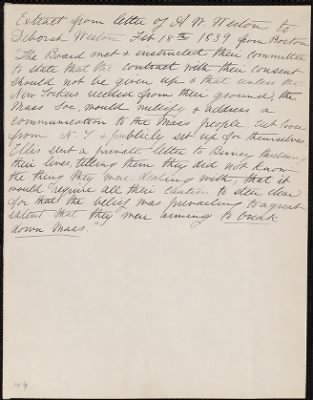 Extract from letter of A. W. Weston to
Deborah Weston Feb 18th 1839 from Boston
"The Board met & instructed their committee
to state that the contract with their consent
should not be given up & that unless the
New Yorkers receded from their ground, the
Mass Soc. would multiply & address a
communication to the Mass people, cut loose
from N. Y. & publicly set up for themselves
Ellis sent a private letter to Birney threatening
their lives, telling them they did not know
the thing they were dealing with, that it
would require all their caution to steer clear
for that the belief was prevailing to a great
extent that they were aiming to break
down Mass."